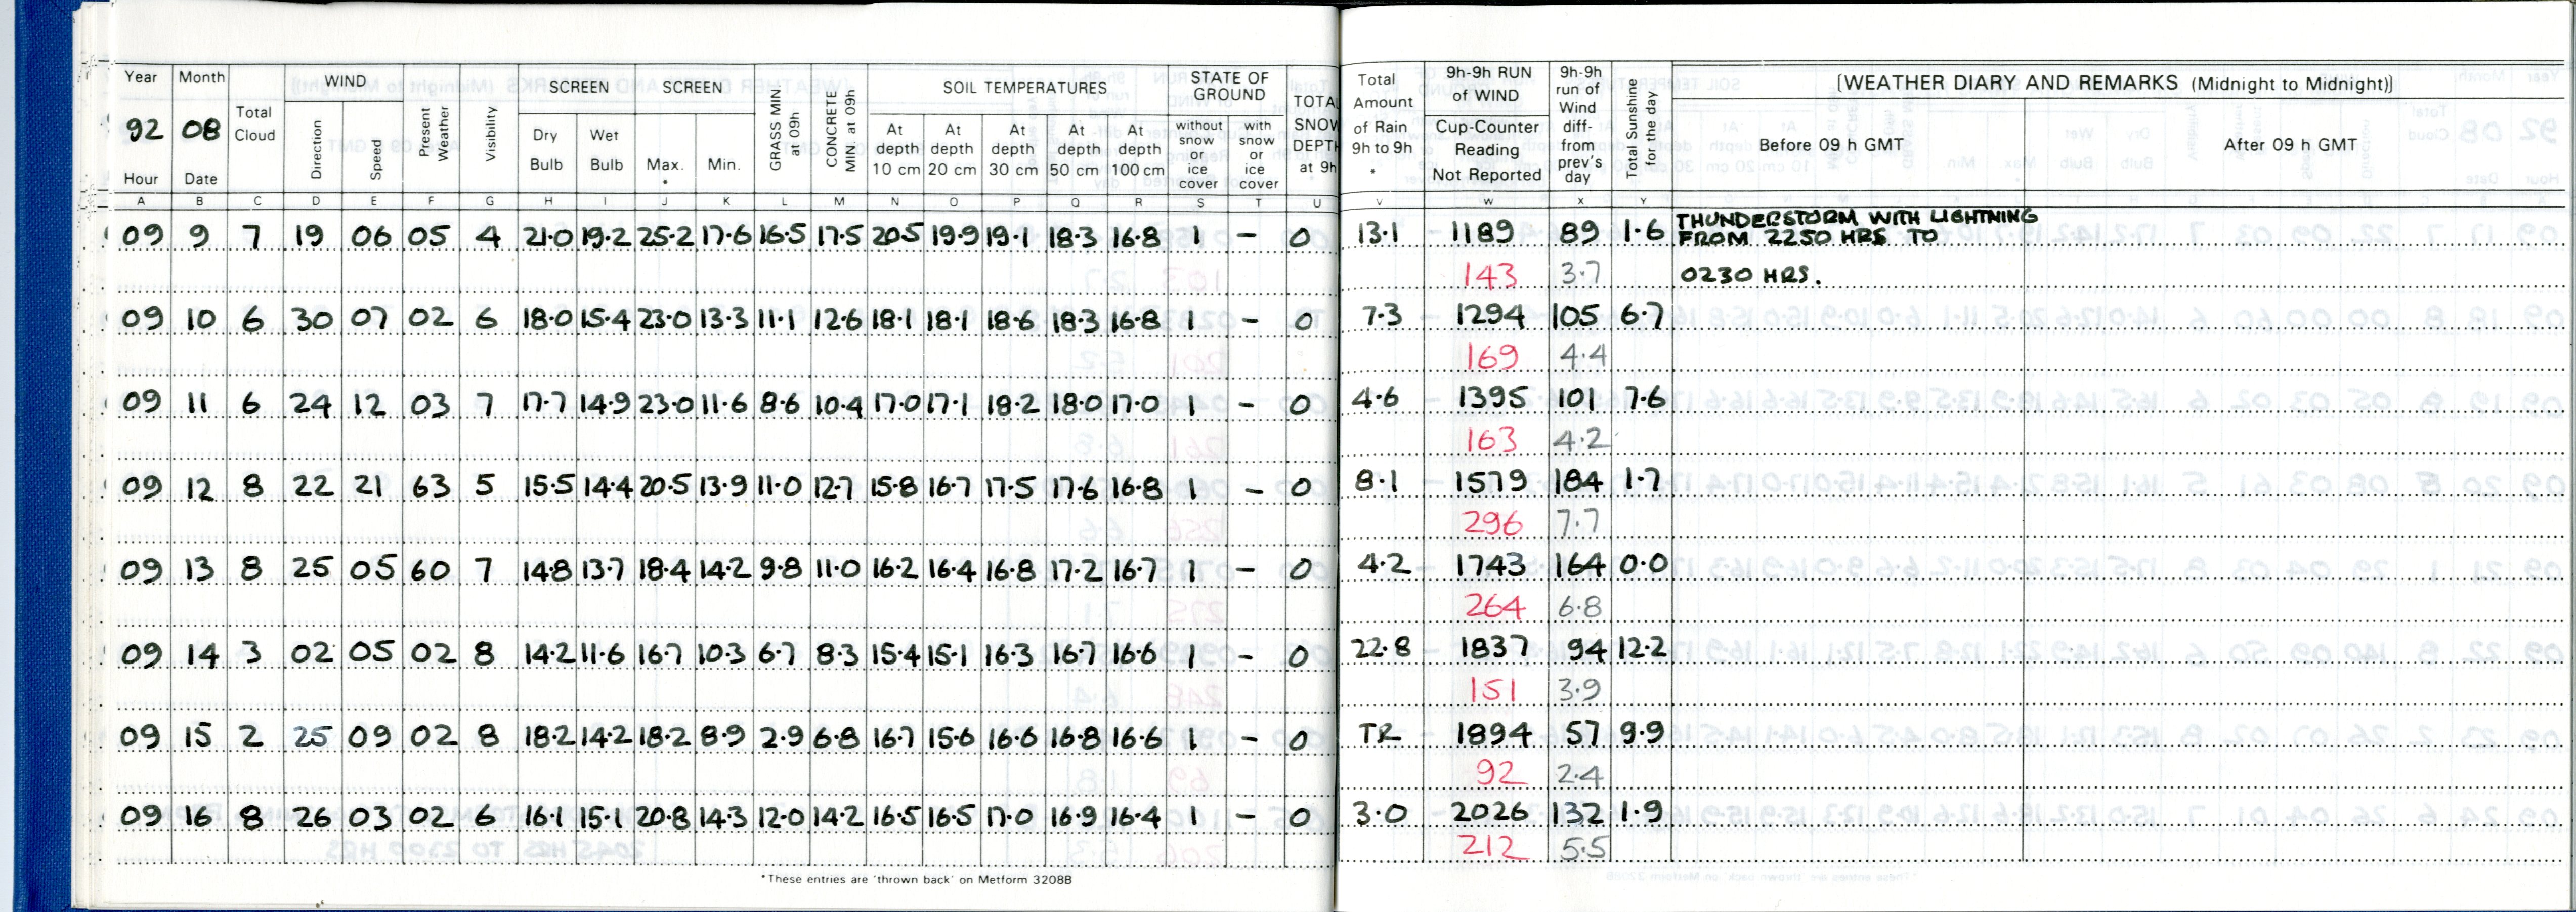 Year Month Total Cloud WIND Present Weather Visibility SCREEN SCREEN GRASS MIN. at 09h CONCRETE MIN. at 09h SOIL TEMPERATURES STATE OF GROUND TOTAL SNOW DEPTH at 9h Total Amount of Rain 9h to 9h * 9h-9h RUN of WIND 9h-9h run of Wind diff- from prev's day Total Sunshine for the day [WEATHER DIARY AND REMARKS (Midnight to Midnight)]
92 08 Direction Speed Dry Bulb Wet Bulb Max. * Min. At depth 10 cm At depth 20 cm At depth 30 cm At depth 50 cm At depth 100 cm without snow or ice cover with snow or ice cover Cup-Counter Reading Not Reported Before 09 h GMT After 09 h GMT
Hour Date
A B C D E F G H I J K L M N O P Q R S T U V W X Y
09 9 7 19 06 05 4 21.0 19.2 25.2 17.6 16.5 17.5 20.5 19.9 19.1 18.3 16.8 1 – 0 13.1 1189 89 1.6 THUNDERSTORM WITH LIGHTNING
FROM 2250 HRS TO
143 3.7 0230 HRS.
09 10 6 30 07 02 6 18.0 15.4 23.0 13.3 11.1 12.6 18.1 18.1 18.6 18.3 16.8 1 – 0 7.3 1294 105 6.7
169 4.4
09 11 6 24 12 03 7 17.7 14.9 23.0 11.6 8.6 10.4 17.0 17.1 18.2 18.0 17.0 1 – 0 4.6 1395 101 7.6
163 4.2
09 12 8 22 21 63 5 15.5 14.4 20.5 13.9 11.0 12.7 15.8 16.7 17.5 17.6 16.8 1 – 0 8.1 1579 184 1.7
296 7.7
09 13 8 25 05 60 7 14.8 13.7 18.4 14.2 9.8 11.0 16.2 16.4 16.8 17.2 16.7 1 – 0 4.2 1743 164 0.0
264 6.8
09 14 3 02 05 02 8 14.2 11.6 16.7 10.3 6.7 8.3 15.4 15.1 16.3 16.7 16.6 1 – 0 22.8 1837 94 12.2
151 3.9
09 15 2 25 09 02 8 18.2 14.2 18.2 8.9 2.9 6.8 16.7 15.6 16.6 16.8 16.6 1 – 0 TR 1894 57 9.9
92 2.4
09 16 8 26 03 02 6 16.1 15.1 20.8 14.3 12.0 14.2 16.5 16.5 17.0 16.9 16.4 1 – 0 3.0 2026 132 1.9
212 5.5
*These entries are 'thrown back' on Metform 3208B